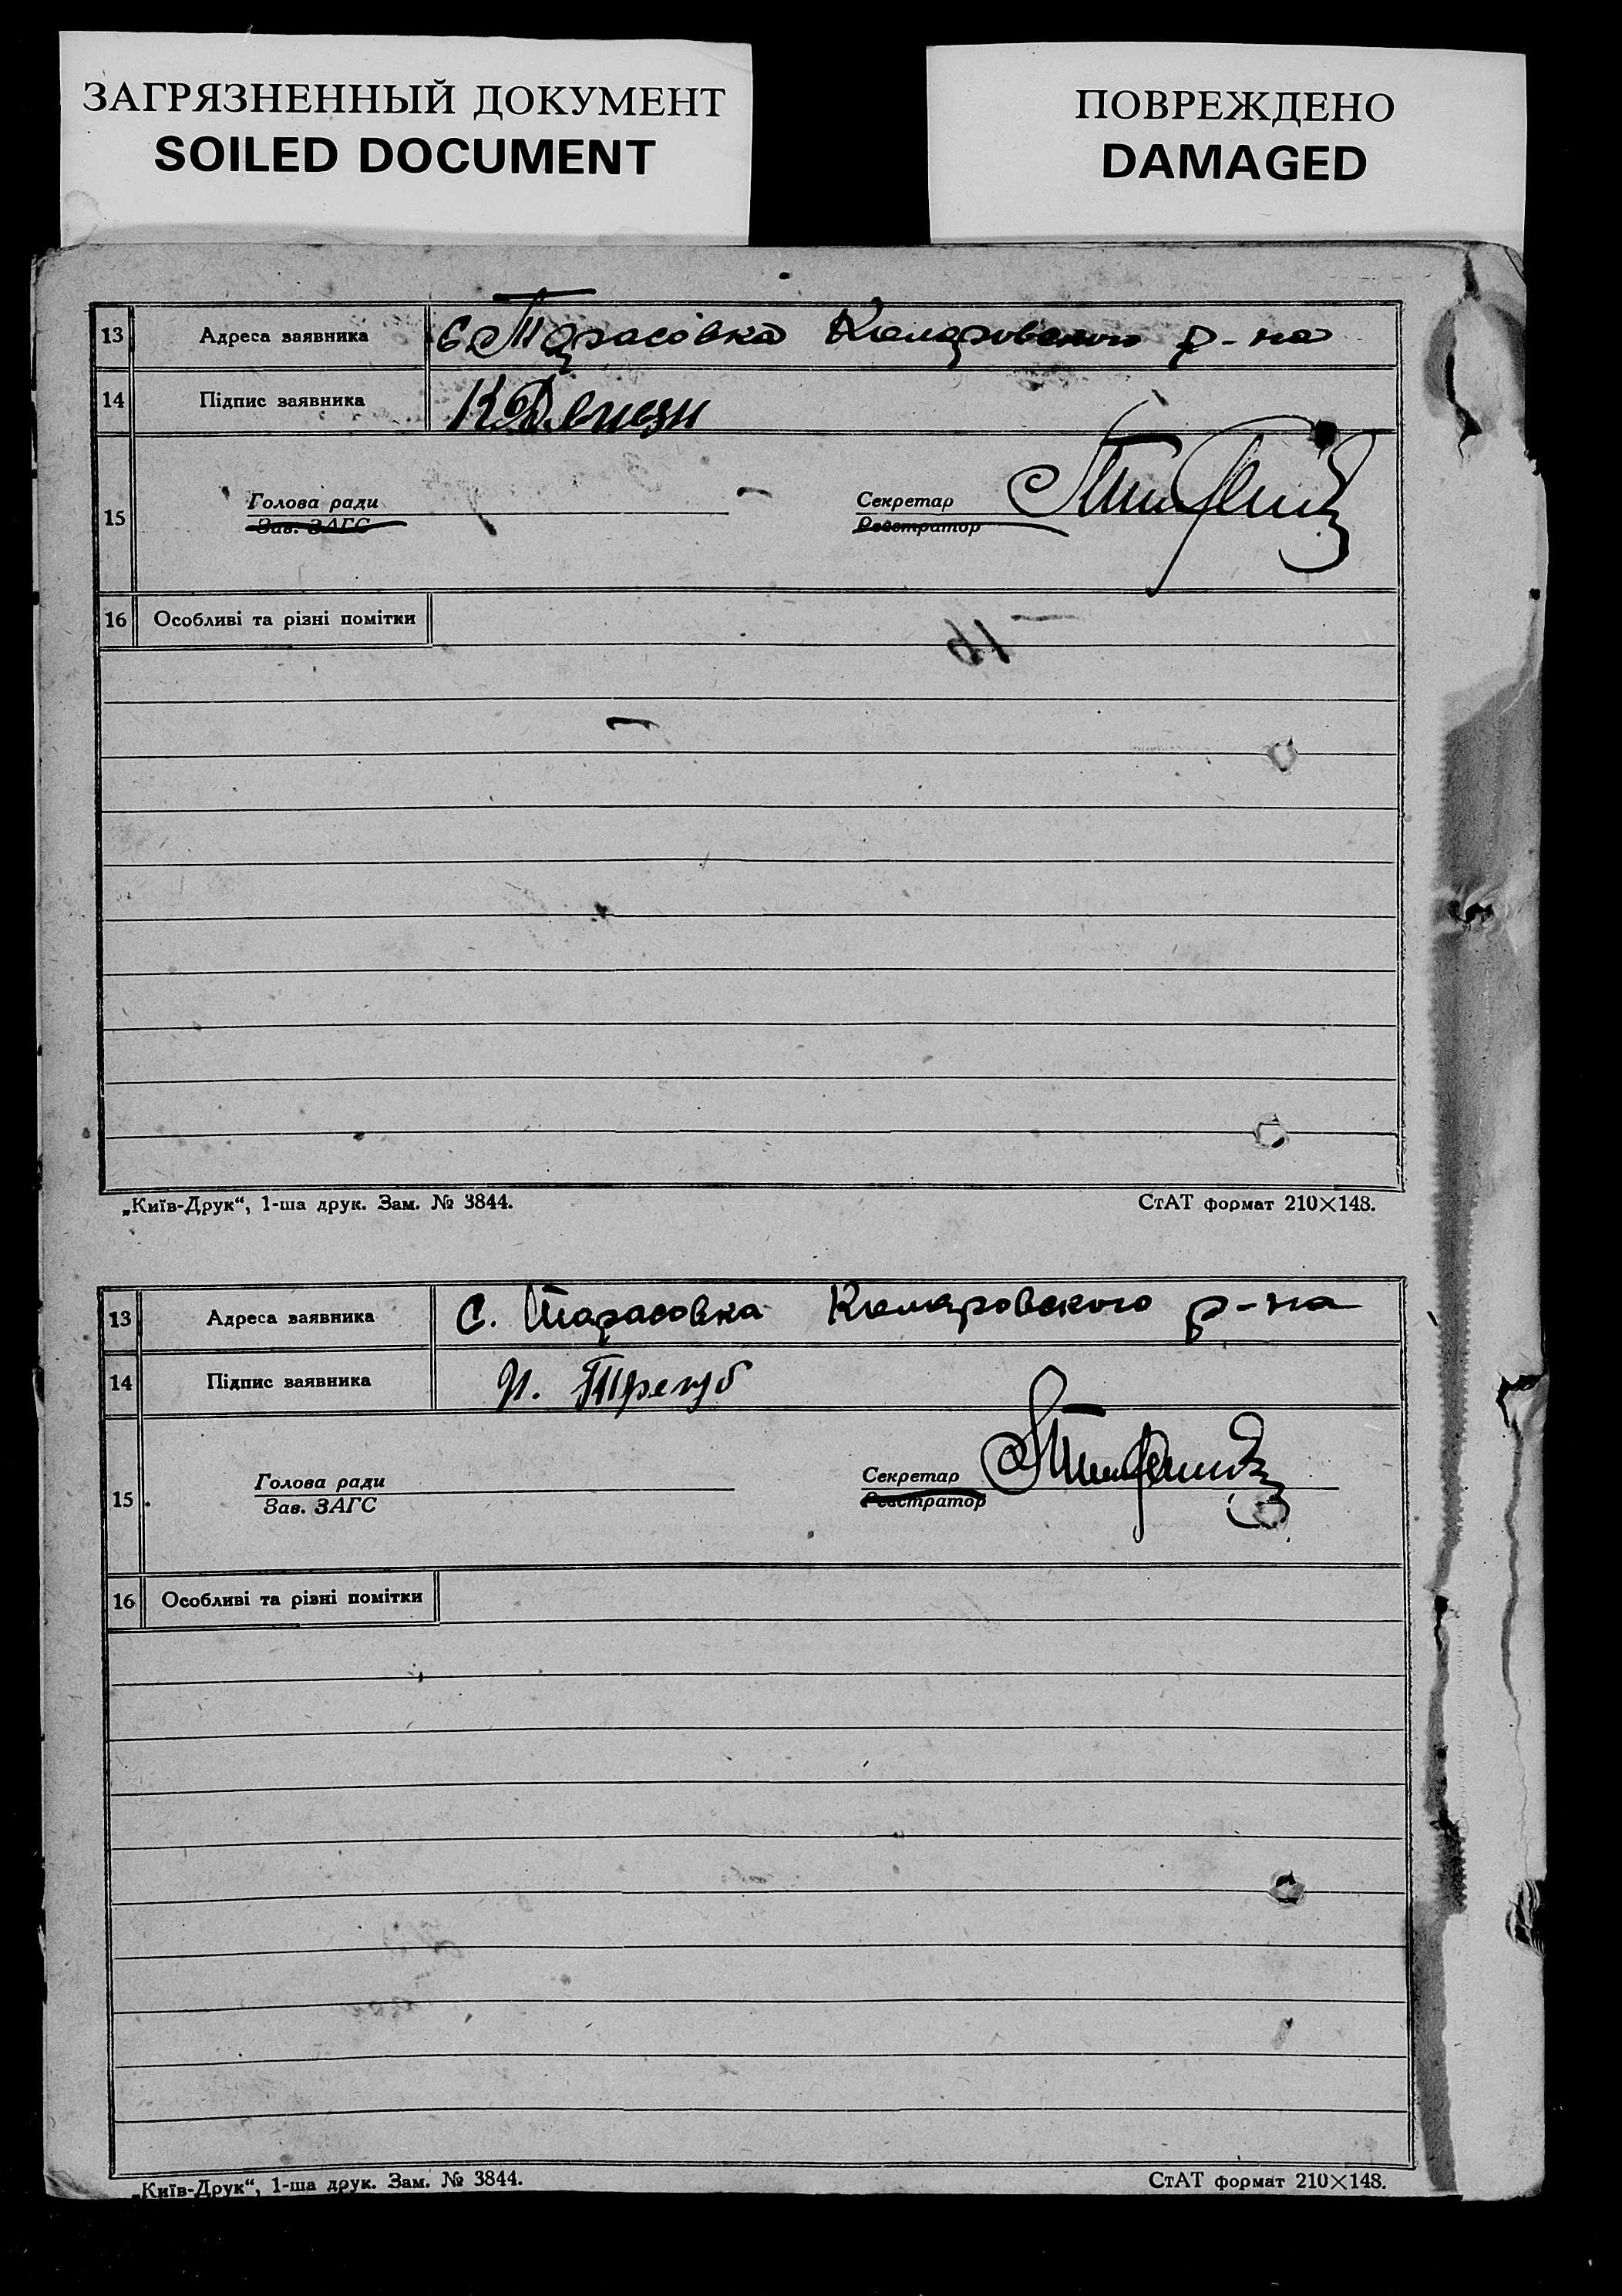 ЗАГРЯЗНЕННЫЙ ДОКУМЕНТ
SOILED DOCUMENT
ПОВРЕЖДЕНО
DAMAGED
13 Адреса заявника с. Тарасовка р-на
14 Підпис заявника
15 Голова ради Секретар
Зав. ЗАГС Реєстратор
16 Особливі та різні помітки
„Київ-Друк“, 1-ша друк. Зам. № 3844. СтАТ формат 210×148.
13 Адреса заявника С. Тарасовка р-на
14 Підпис заявника И. Трегуб
15 Голова ради Секретар
Зав. ЗАГС Реєстратор
16 Особливі та різні помітки
„Київ-Друк“, 1-ша друк. Зам. № 3844. СтАТ формат 210×148.